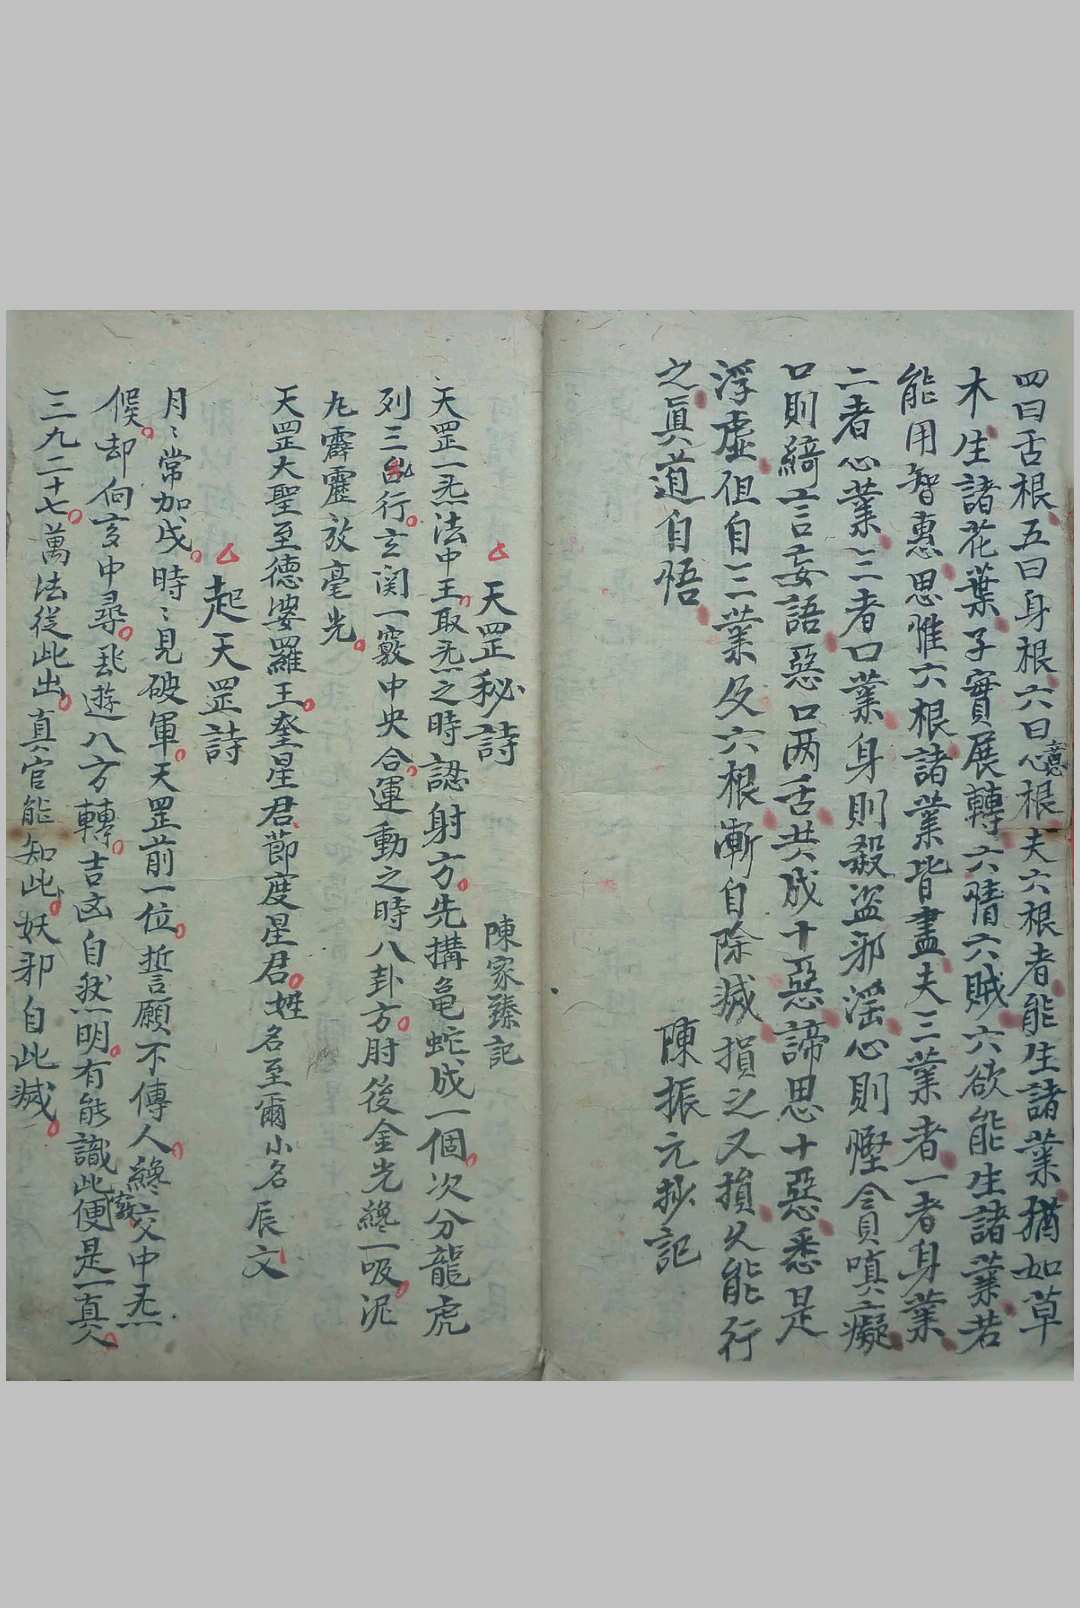 四曰舌根五曰身根六曰心意根夫六根者能生諸業猶如草
木生諸花葉子實展轉六情六賊六欲能生諸業若
能用智惠思惟六根諸業皆盡夫三業者一者身業
二者心業三者口業身則殺盜邪淫心則慳貪嗔癡
口則綺言妄語惡口两舌共成十惡諦思十惡悉是
浮虛徂自三業及六根漸自除滅損之又損久能行
之真道自悟 陳振元抄記
天罡秘詩 陳家臻記
天罡一炁法中王取炁之時認射方先搆龜蛇成一個次分龍虎
列三台行玄関一竅中央合運動之時八卦方肘後金光纔一吸泥
九霹靂放毫光
天罡大聖至德婆羅王奎星君節度星君姓名至爾小名辰文
起天罡詩
月〻常加戌時〻見破軍天罡前一位誓願不傳人纔交中炁
候却向亥中尋我遊八方轉吉凶自然明有能識此竅便是一真人
三九二十七萬法從此出真官能知此妖邪自此滅